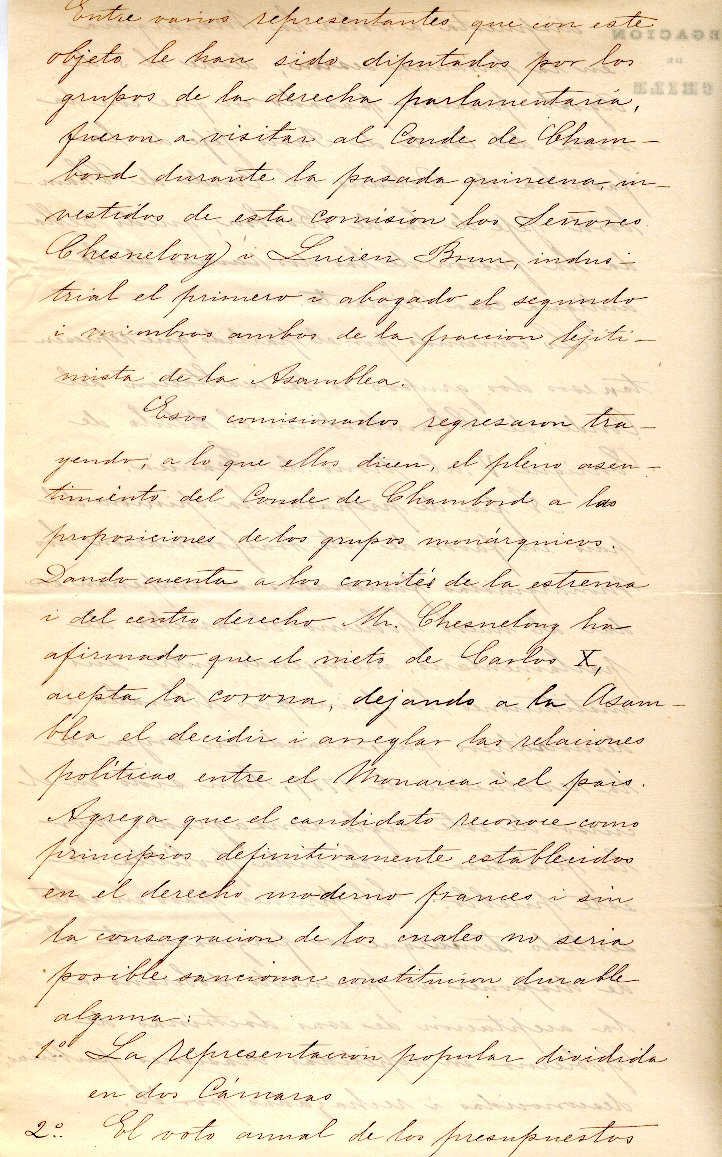 Entre varios representantes que con este
objeto le han sido diputados por los
grupos de la derecha parlamentaria,
fueron a visitar al Conde de Cham-
bord durante la pasada quincena, in-
vestidos de esta comision los Señores
Chesnelong i Lucien Brun, indus
trial el primero i abogado el segundo
i miembros ambos de la fraccion lejiti-
mista de la Asamblea.
Esos comisionados regresaron tra-
yendo, a lo que ellos dicen, el pleno asen-
timiento del Conde de Chambord a las
proposiciones de los grupos monárquicos.
Dando cuenta a los comités de la estrema
i del centro derecho Mr. Chesnelong ha
afirmado que el nieto de Carlos X,
acepta la corona, dejando a la Asam-
blea el decidir i arreglar las relaciones
políticas entre el Monarca i el pais.
Agrega que el candidato reconoce como
principios definitivamente establecidos
en el derecho moderno frances i sin
la consagracion de los cuales no seria
posible sancionar constitucion durable
alguna:
1º. La representacion popular dividida
en dos Cámaras
2º. El voto anual de los presupuestos
EGACION
DE
CHILE